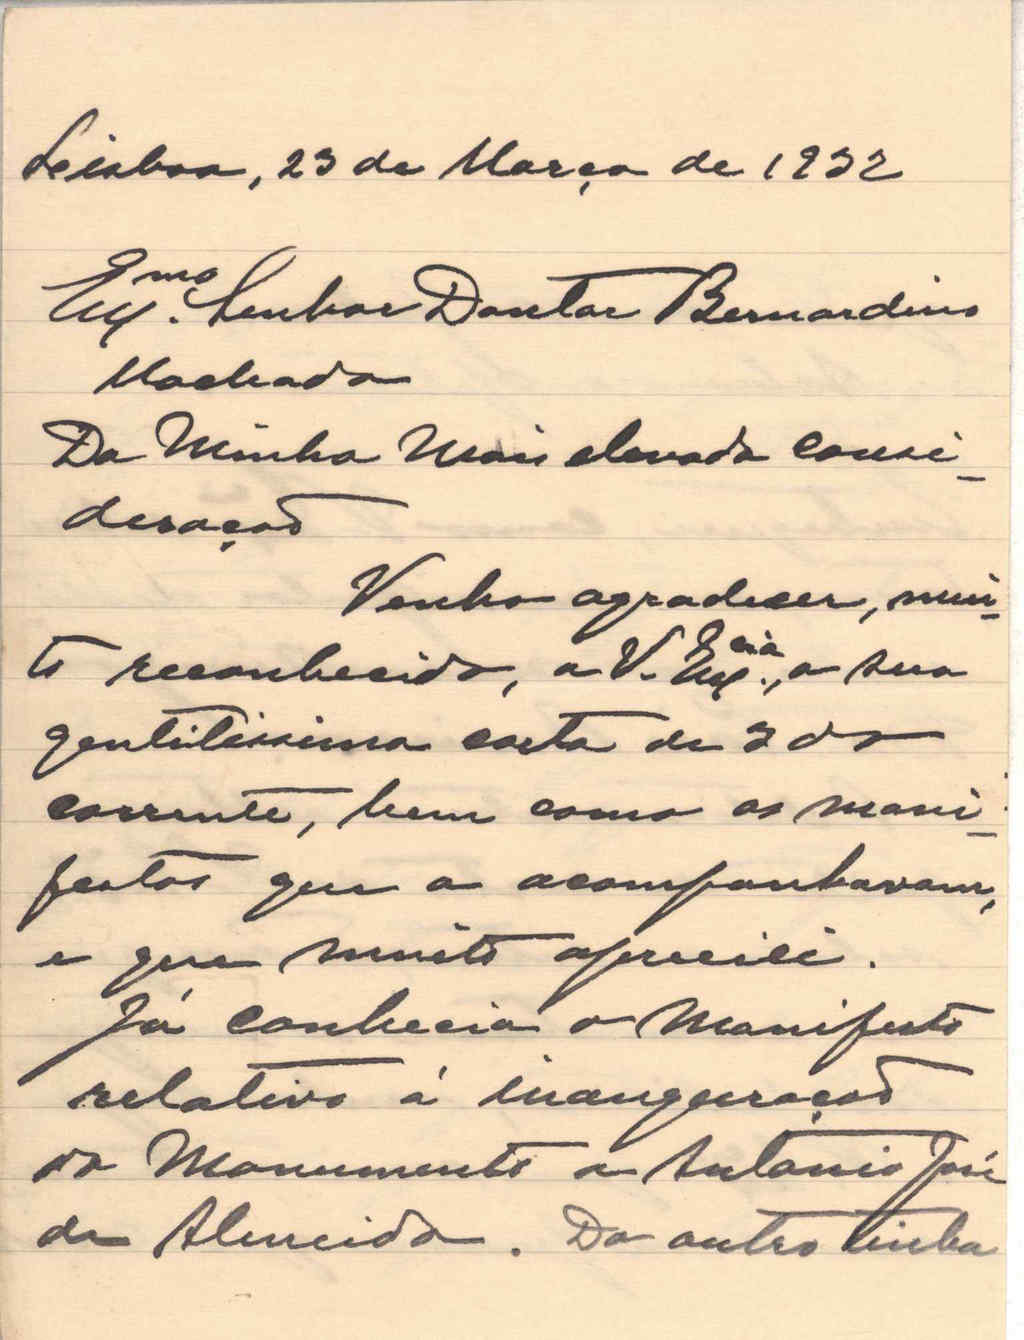 Lisboa, 23 de Março de 1932
Exmo. Senhor Doutor Bernardino
Machado
Da Minha Mais elevada consi-
deração
Venho agradecer, mui-
to reconhecido, a V. Excia., a sua
gentilissima carta de 2 do
corrente, bem como os mani-
festos que a acompanhavam,
e que muito apreciei.
Já conhecia o Manifesto
relativo á inauguração
do Monumento a António José
de Almeida. Do outro tinha